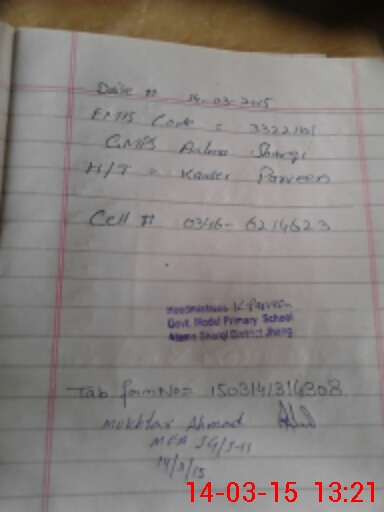 Date # 14-03-2015
EMIS Code = 33221101
GMPS Sharqi
H/T = Kauser Parveen
Cell # 0346-6214623
Headmistress K Parveen
Govt. Model Primary School
Sharqi District Jhang
Tab form No= 1503141314308
Mukhtar Ahmad
MEA JG/J-11
14/3/15
14-03-15 13:21